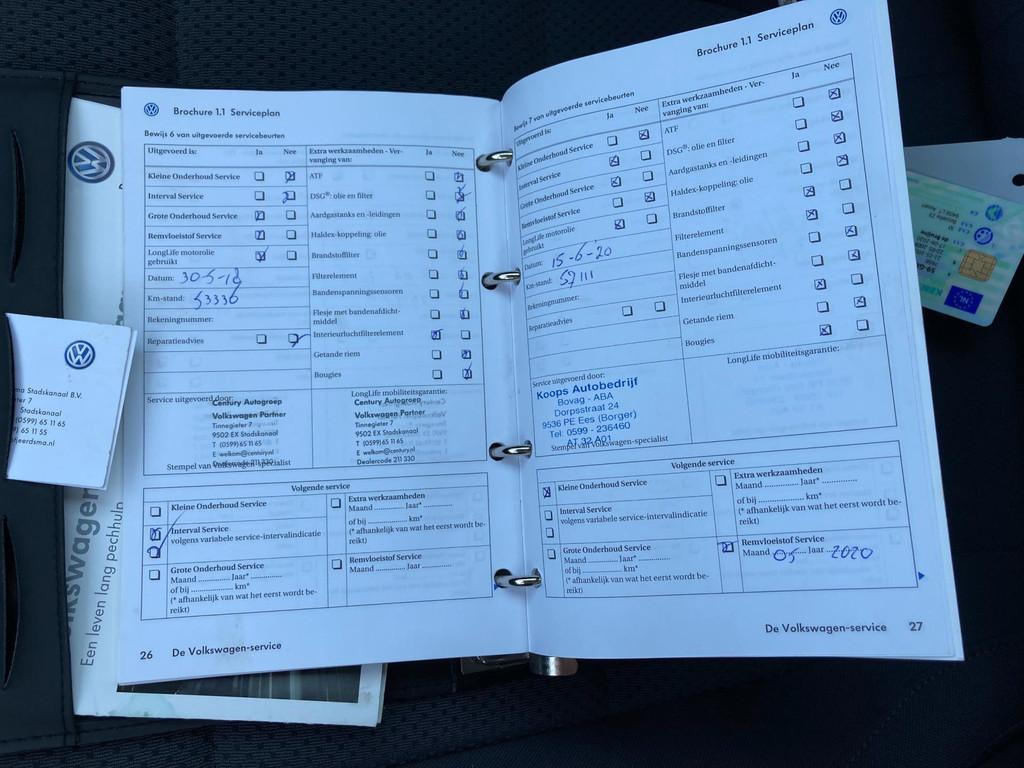 Brochure 1.1 Serviceplan
Bewijs 6 van uitgevoerde servicebeurten
Uitgevoerd is: Ja Nee
Kleine Onderhoud Service
Interval Service
Grote Onderhoud Service
Remvloeistof Service
LongLife motorolie
gebruikt
Datum: 30-5-18
Km-stand: 53336
Rekeningnummer:
Reparatieadvies
Extra werkzaamheden - Ver-
vanging van: Ja Nee
ATF
DSG®: olie en filter
Aardgastanks en -leidingen
Haldex-koppeling: olie
Brandstoffilter
Filterelement
Bandenspanningssensoren
Flesje met bandenafdicht-
middel
Interieurluchtfilterelement
Getande riem
Bougies
Service uitgevoerd door:
Century Autogroep
Volkswagen Partner
Tinnegieter 7
9502 EX Stadskanaal
T (0599) 65 11 65
E welkom@century.nl
Dealercode 211 330
Stempel van Volkswagen-specialist
LongLife mobiliteitsgarantie:
Century Autogroep
Volkswagen Partner
Tinnegieter 7
9502 EX Stadskanaal
T (0599) 65 11 65
E welkom@century.nl
Dealercode 211 330
Volgende service
Kleine Onderhoud Service
Interval Service
volgens variabele service-intervalindicatie
Grote Onderhoud Service
Maand ............ Jaar* ............
of bij ............ km*
(* afhankelijk van wat het eerst wordt be-
reikt)
Extra werkzaamheden
Maand ............ Jaar* ............
of bij ............ km*
(* afhankelijk van wat het eerst wordt be-
reikt)
Remvloeistof Service
Maand ............ Jaar ............
26 De Volkswagen-service
Brochure 1.1 Serviceplan
Bewijs 7 van uitgevoerde servicebeurten
Uitgevoerd is: Ja Nee
Kleine Onderhoud Service
Interval Service
Grote Onderhoud Service
Remvloeistof Service
LongLife motorolie
gebruikt
Datum: 15-6-20
Km-stand: 59111
Rekeningnummer:
Reparatieadvies
Extra werkzaamheden - Ver-
vanging van: Ja Nee
ATF
DSG®: olie en filter
Aardgastanks en -leidingen
Haldex-koppeling: olie
Brandstoffilter
Filterelement
Bandenspanningssensoren
Flesje met bandenafdicht-
middel
Interieurluchtfilterelement
Getande riem
Bougies
Service uitgevoerd door:
Koops Autobedrijf
Bovag - ABA
Dorpsstraat 24
9536 PE Ees (Borger)
Tel: 0599 - 236460
AT 32 A01
Stempel van Volkswagen-specialist
LongLife mobiliteitsgarantie:
Volgende service
Kleine Onderhoud Service
Interval Service
volgens variabele service-intervalindicatie
Grote Onderhoud Service
Maand ............ Jaar* ............
of bij ............ km*
(* afhankelijk van wat het eerst wordt be-
reikt)
Extra werkzaamheden
Maand ............ Jaar* ............
of bij ............ km*
(* afhankelijk van wat het eerst wordt be-
reikt)
Remvloeistof Service
Maand 05 Jaar 2020
De Volkswagen-service 27
ma Stadskanaal B.V.
ter 7
Stadskanaal
(0599) 65 11 65
) 65 11 55
fjeerdsma.nl
kswagen
Een leven lang pechhulp
NL